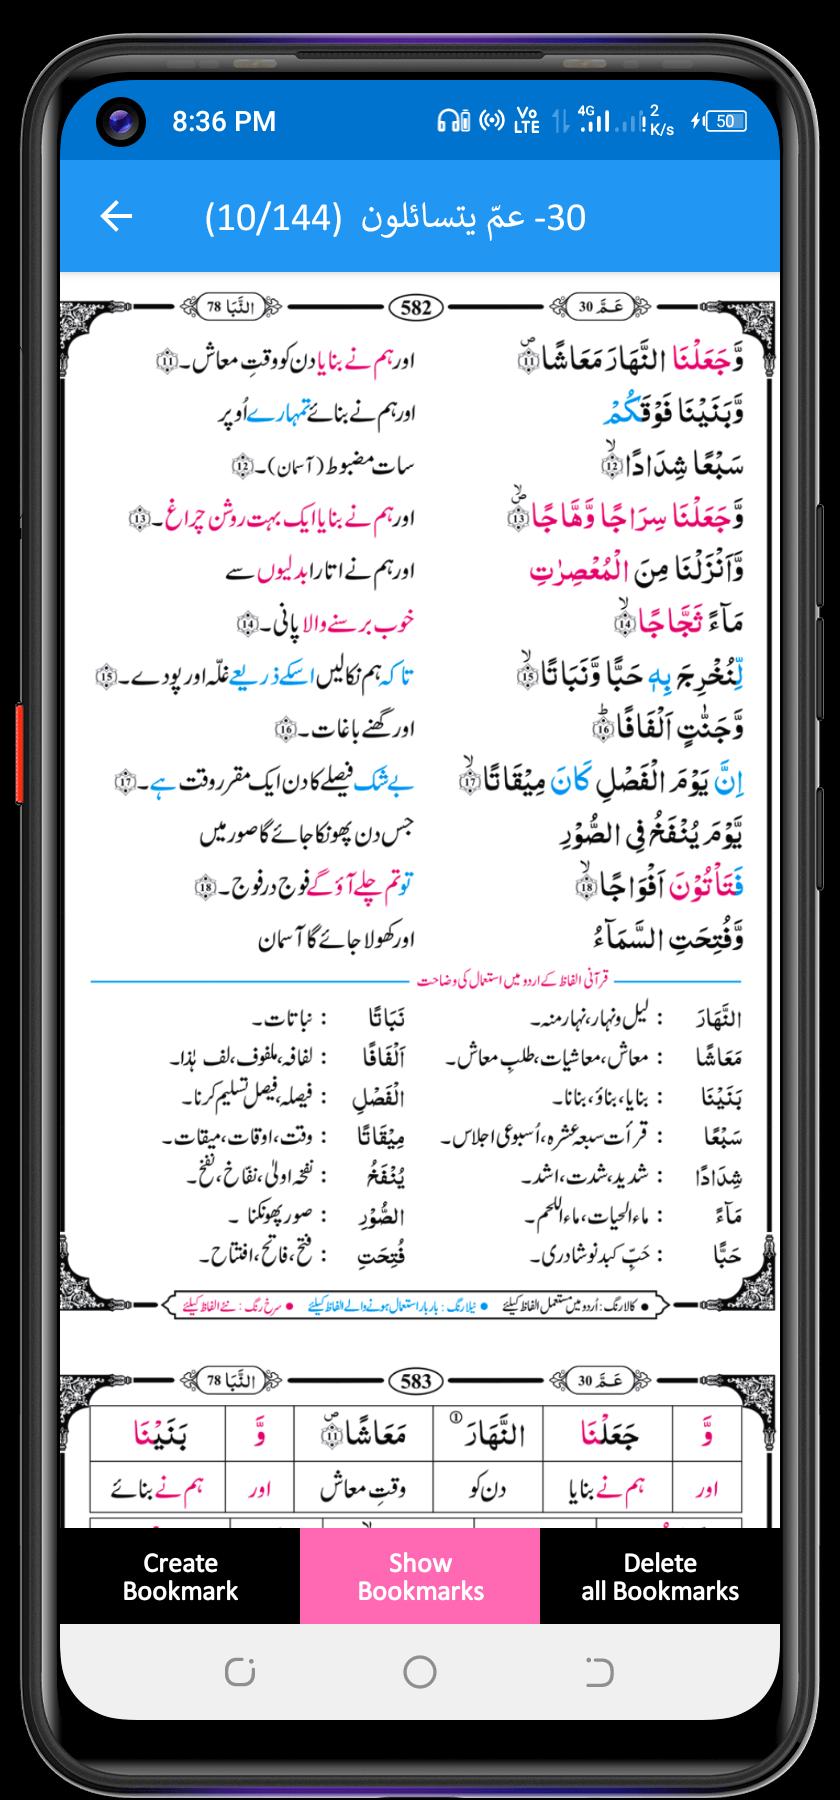 8:36 PM Vo LTE 4G 2 K/s 50
30- عمّ یتسائلون (10/144)
عَمَّ 30 582 النَّبَا 78
وَّجَعَلْنَا النَّهَارَ مَعَاشًا ۪ۙ ﴿11﴾ اور ہم نے بنایا دن کو وقتِ معاش۔ ﴿11﴾
وَّبَنَيْنَا فَوْقَكُمْ اور ہم نے بنائے تمہارے اُوپر
سَبْعًا شِدَادًا ۙ ﴿12﴾ سات مضبوط (آسمان)۔ ﴿12﴾
وَّجَعَلْنَا سِرَاجًا وَّهَّاجًا ۪ۙ ﴿13﴾ اور ہم نے بنایا ایک بہت روشن چراغ۔ ﴿13﴾
وَّاَنْزَلْنَا مِنَ الْمُعْصِرٰتِ اور ہم نے اتارا بدلیوں سے
مَآءً ثَجَّاجًا ۙ ﴿14﴾ خوب برسنے والا پانی۔ ﴿14﴾
لِّنُخْرِجَ بِهٖ حَبًّا وَّنَبَاتًا ۙ ﴿15﴾ تاکہ ہم نکالیں اسکے ذریعے غلّہ اور پودے۔ ﴿15﴾
وَّجَنّٰتٍ اَلْفَافًا ؕ ﴿16﴾ اور گھنے باغات۔ ﴿16﴾
اِنَّ يَوْمَ الْفَصْلِ كَانَ مِيْقَاتًا ۙ ﴿17﴾ بے شک فیصلے کا دن ایک مقرر وقت ہے۔ ﴿17﴾
يَّوْمَ يُنْفَخُ فِي الصُّوْرِ جس دن پھونکا جائے گا صور میں
فَتَاْتُوْنَ اَفْوَاجًا ۙ ﴿18﴾ تو تم چلے آؤ گے فوج در فوج۔ ﴿18﴾
وَّفُتِحَتِ السَّمَآءُ اور کھولا جائے گا آسمان
قرآنی الفاظ کے اردو میں استعمال کی وضاحت
النَّهَارَ : لیل و نہار، نہار منہ۔ نَبَاتًا : نباتات۔
مَعَاشًا : معاش، معاشیات، طلبِ معاش۔ اَلْفَافًا : لفافہ، ملفوف، لف ہٰذا۔
بَنَيْنَا : بنایا، بناؤ، بنانا۔ الْفَصْلِ : فیصلہ، فیصل تسلیم کرنا۔
سَبْعًا : قرأت سبعہ عشرہ، اُسبوعی اجلاس۔ مِيْقَاتًا : وقت، اوقات، میقات۔
شِدَادًا : شدید، شدت، اشد۔ يُنْفَخُ : نفخہ اولیٰ، نفّاخ، نفخ۔
مَآءً : ماء الحیات، ماء اللحم۔ الصُّوْرِ : صور پھونکنا ۔
حَبًّا : حَبِّ کبد نوشادری۔ فُتِحَتِ : فتح، فاتح، افتتاح۔
● کالا رنگ : اُردو میں مستعمل الفاظ کیلئے ● نیلا رنگ : بار بار استعمال ہونے والے الفاظ کیلئے ● سرخ رنگ : نئے الفاظ کیلئے
عَمَّ 30 583 النَّبَا 78
وَّ جَعَلْنَا النَّهَارَ ① مَعَاشًا ۪ۙ ﴿11﴾ وَّ بَنَيْنَا
اور ہم نے بنایا دن کو وقتِ معاش اور ہم نے بنائے
Create Bookmark
Show Bookmarks
Delete all Bookmarks